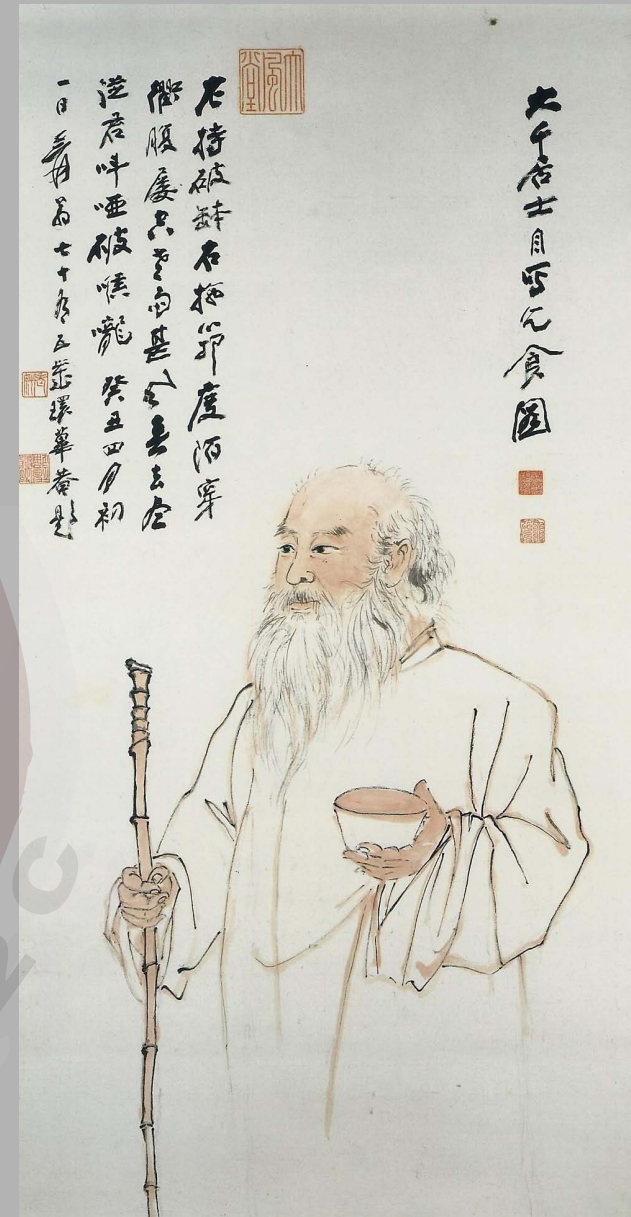 大千居士自寫乞食圖
大風堂
左持破缽右拖筇度陌穿
衢腹屢空老雨甚風春去盡
從君叫啞破喉嚨 癸丑四月初
一日爰翁七十有五歲環蓽菴題